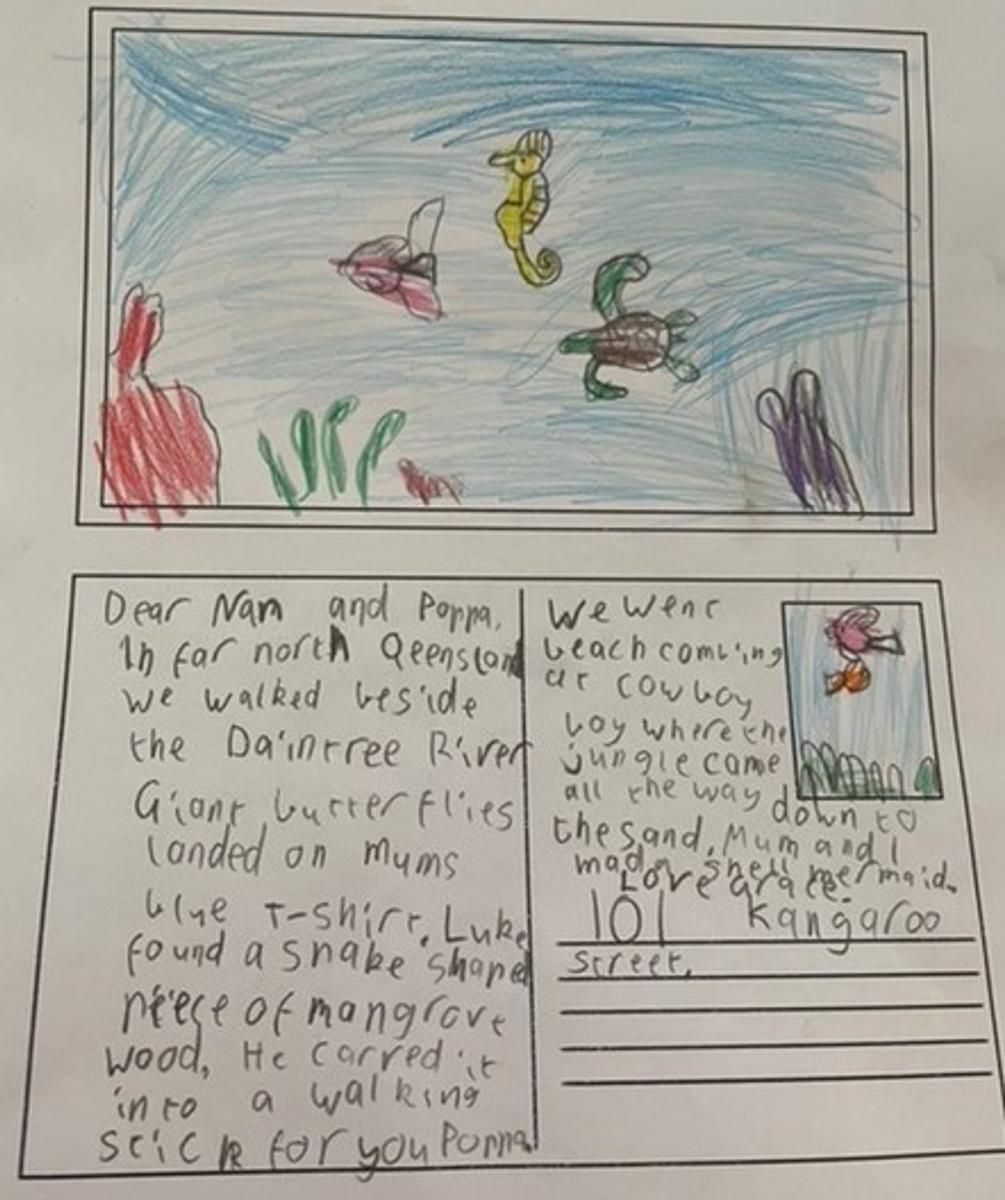 Dear Nan and Poppa,
In far north Qeensland
we walked beside
the Daintree River
Giant butterflies
landed on mums
blue T-shirt. Luke
found a snake shaped
peiece of mangrove
wood, He carved it
into a walking
stick for you Poppa.
We went
beach combing
at cowboy
boy where the
jungle came
all the way down to
the sand. Mum and I
made shell mermaid.
Love
101 Kangaroo
street.